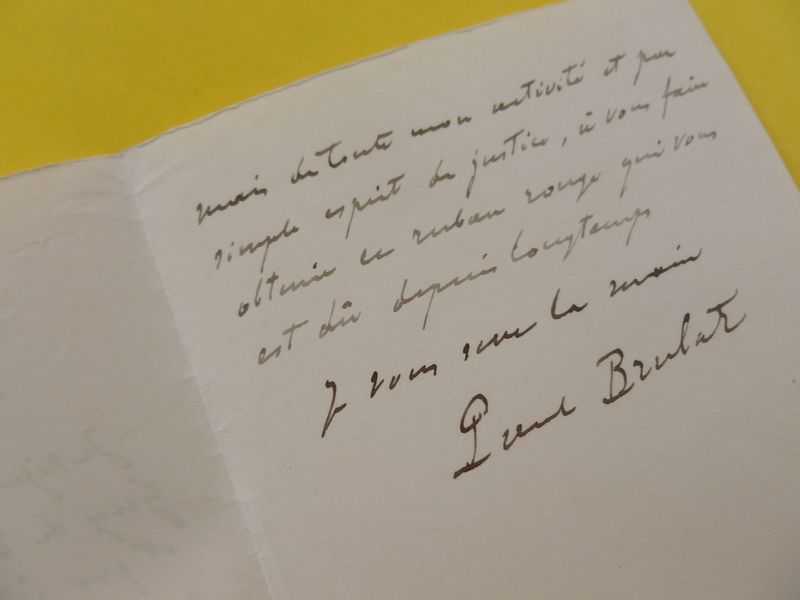 mais de toute mon activité et par
simple esprit de justice, à vous faire
obtenir ce ruban rouge qui vous
est dû depuis longtemps
Je vous serre la main
Paul Brulat